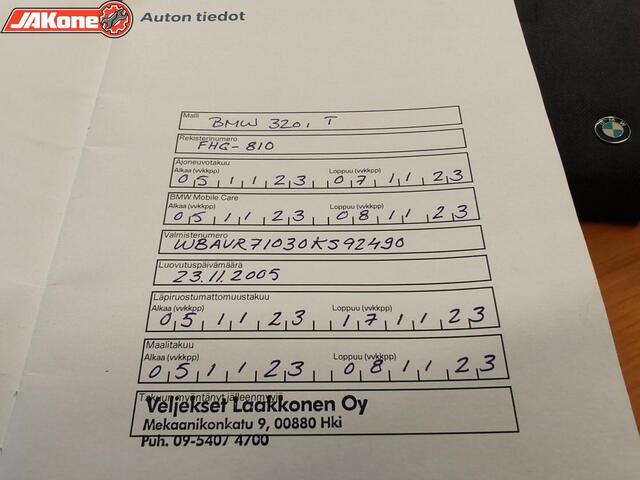 JAKone
Auton tiedot
BMW
Malli
BMW 320i T
Rekisterinumero
FHG-810
Ajoneuvotakuu
Alkaa (vvkkpp) Loppuu (vvkkpp)
051123 071123
BMW Mobile Care
Alkaa (vvkkpp) Loppuu (vvkkpp)
051123 081123
Valmistenumero
WBAVR71030KS92490
Luovutuspäivämäärä
23.11.2005
Läpiruostumattomuustakuu
Alkaa (vvkkpp) Loppuu (vvkkpp)
051123 171123
Maalitakuu
Alkaa (vvkkpp) Loppuu (vvkkpp)
051123 081123
Takuun myöntänyt jälleenmyyjä
Veljekset Laakkonen Oy
Mekaanikonkatu 9, 00880 Hki
Puh. 09-5407 4700